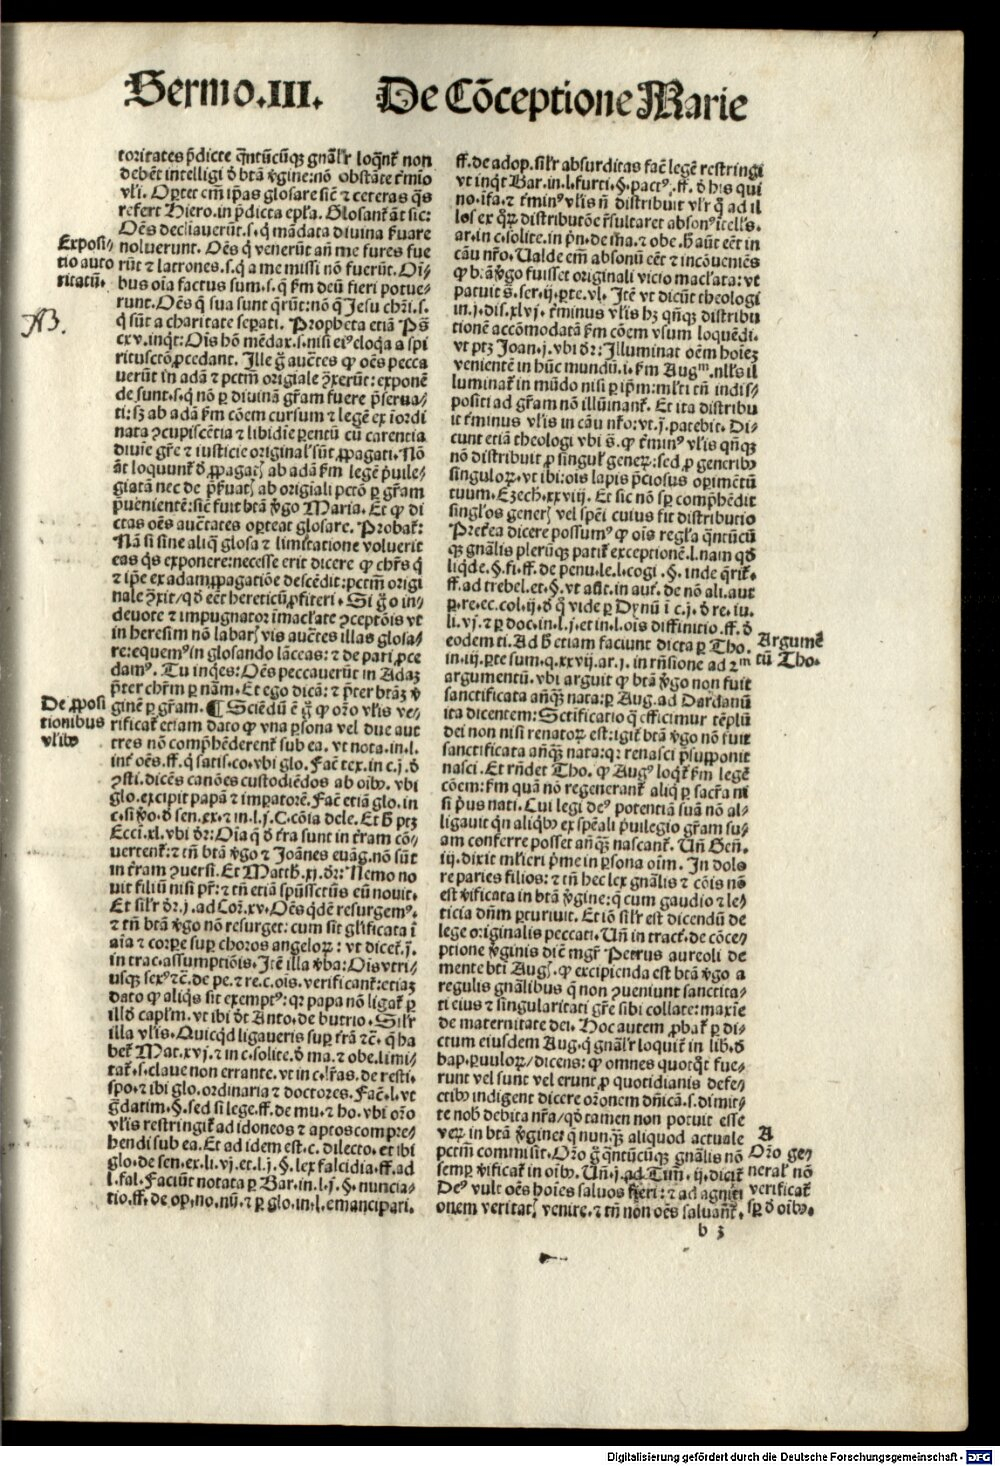 Sermo.III. De Cōceptione Marie
toritates p̄dicte q̄ntūcūq; gn̄alr̄ loqn̄t̄ non
debēt intelligi ð btā v̄gine: nō obstāte t̄mīo
vl̄i. Oꝑtet em̄ ip̄as glosare sic̄ ⁊ ceteras q̄s
refert Hiero. in p̄dicta ep̄la. Glosant̄ āt sic:
Oēs declīauerūt .s. q̄ mādata diuina ẜuare
noluerunt. Oēs q̄ venerūt an̄ me fures fue
rūt ⁊ latrones .s. q̄ a me missi nō fuerūt. Oī⸗
bus oīa factus sum .s. q̄ ẜm deū fieri potue⸗
runt. Oēs q̄ sua sunt q̄rūt: nō q̄ Jesu chr̄i .s.
q̄ sūt a charitate seꝑati. Propheta etiā Ps̄
cxv. inq̇t: Oīs hō mēdax .s. nisi ei⁹ eloq̄a a spi
ritusctō ꝓcedant. Ille g̊ auc̄tes ꝙ oēs pecca
uerūt in adā ⁊ pctm̄ origiale ꝯ̄xerūt: exponē
de sunt .s. q̄ nō ꝑ diuinā gr̄am fuere p̄serua⸗
ti: sȝ ab adā ẜm cōem cursum ⁊ legē ex iordi
nata ꝯcupiscētia ⁊ libidīe ꝑentū cū carentia
diuīe gr̄e ⁊ iusticie original̄ sūt ꝓpagati. Nō
āt loquunt̄ ð ꝓpagatꝭ ab adā ẜm legē p̄uile⸗
giatā nec de p̄ẜuatꝭ ab origiali pctō ꝑ gr̄am
p̄uenientē: sic̄ fuit btā v̄go Maria. Et ꝙ di
ctas oēs auc̄tates oꝑteat glosare. Probat̄:
Nā si sine aliq̄ glosa ⁊ limitatione voluerit
eas q̇s exponere: necesse erit dicere ꝙ chr̄s q̄
⁊ ip̄e ex adam ꝓpagatiōe descēdit: pctm̄ origi
nale ꝯ̄xit/ qð eēt hereticū ꝓfiteri. Si g̊o in⸗
deuote ⁊ impugnator īmacl̄ate ꝯceptōis vt
in heresim nō labarꝭ vis auc̄tes illas glosa⸗
re: equem⁹ in glosando lāceas: ⁊ de pari ꝓce
dam⁹. Tu inq̇es: Oēs peccauerūt in Adaȝ
p̄ter chr̄m ꝑ nām. Et ego dicā: ⁊ p̄ter btāȝ v̄
ginē ꝑ gr̄am. ¶ Sciēdū ē g̊ ꝙ or̄o vl̄is ve⸗
rificat̄ etiam dato ꝙ vna ꝑsona vel due aut
tres nō comp̄hēderent̄ sub ea. vt nota. in .l.
int̄ oēs. ff. q̄ satis. co. vbi glo. Facē tex. in c. j. ð
ꝯsti. dicēs canōes custodiēdos ab oībꝰ. vbi
glo. excipit papā ⁊ imꝑatorē. Facē etiā glo. in
c. si v̊o. ð sen. ex. ⁊ in l. j. C. cōia dele. Et h̄ ptȝ
Ecci. xl. vbi ð̄r: Oīa q̄ ð t̄ra sunt in t̄ram cō⸗
vertent̄: ⁊ tn̄ btā v̄go ⁊ Joānes euāg. nō sūt
in t̄ram ꝯuersi. Et Matth. xj. ð̄r: Nemo no
uit filiū nisi pr̄: ⁊ tn̄ etiā spūssctūs eū nouit.
Et silr̄ ð̄r .j. ad Cor̄. xv. Oēs q̇dē resurgem⁹.
⁊ tn̄ btā v̄go nō resurget: cum sit gl̄ificata ī
aīa ⁊ corꝑe suꝑ choros angeloꝝ: vt dicet̄ .j̄.
in trac. assumptiōis. Itē illa v̄ba: Oīs vtri⸗
usq; sex⁹ ⁊c̄. de pe. ⁊ re. c. oīs. verificant̄: etiaȝ
dato ꝙ aliq̇s sit exempt⁹: qꝛ papa nō ligat̄ ꝑ
illð capl̄m. vt ibi ð̄t Anto. de butrio. Silr̄
illa vl̄is. Quicq̇d ligaveris suꝑ t̄rā ⁊c̄. q̄ ha
bet̄ Mat. xvj. ⁊ in c. solite. ð ma. ⁊ obe. limi⸗
tat̄ .s. claue non errante. vt in c. lr̄as. de resti⸗
spo. ⁊ ibi glo. ordinaria ⁊ doctores. Facē .l. vt
g̊datim. §. sed si lege. ff. de mu. ⁊ ho. vbi or̄o
vl̄is restringit̄ ad idoneos ⁊ aptos compre⸗
hendi sub ea. Et ad idem est. c. dilecto. et ibi
glo. de sen. ex. li. vj. et .l. j. §. lex falcidia. ff. ad
l. fal. Faciūt notata ꝑ Bar. in .l. j. §. nuncia⸗
tio. ff. de op. no. nū. ⁊ ꝑ glo. in .l. emancipari.
Exposi⸗
tio auto
ritatū.
AB.
De ꝓposi
tionibus
vl̄ibꝰ
ff. de adop. silr̄ absurditas facē legē restringi
vt inq̇t Bar. in .l. furti. §. pact⁹. ff. ð his qui
no. ifa. ⁊ t̄min⁹ vl̄is n̄ distribuit vlr̄ q̄ ad il
los ex q̇ꝝ distributōe r̄sultaret abson⁹ ītell̄s.
ar. in c. solite. in pn̄. de m̄a. ⁊ obe. h̄ aūt eēt in
cāu nr̄o. Valde em̄ absonū eēt ⁊ incōueniēs
ꝙ b̄ā v̄go fuisset originali vicio macl̄ata: vt
patuit s̄. ser. ij. ꝑte. vl̄. Itē vt dicūt theologi
in .j. dis. xlvj. t̄minus vl̄is hȝ qn̄q; distribu
tionē accōmodatā ẜm cōem vsum loquēdi.
vt ptȝ Joan. j. vbi ð̄r: Illuminat oēm hoīeȝ
venientē in hūc mundū. i. ẜm Augᵐ. nll̄s il
luminat̄ in mūdo nisi ꝑ ip̄m: ml̄ti tn̄ indis⸗
positi ad gr̄am nō illūinant̄. Et ita distribu
it t̄minus vl̄is in cāu nr̄o: vt .j̄. patebit. Di⸗
cunt etiā theologi vbi s̄. ꝙ t̄min⁹ vl̄is qn̄q;
nō distribuit ꝓ singul̄ geneꝝ: sed ꝓ generibꝰ
singuloꝝ. vt ibi: oīs lapis p̄ciosus oꝑimētū
tuum. Ezech. xxviij. Et sic nō sꝑ comp̄hēdit
singl̄os generꝭ vel spēi cuius fit distributio
Pret̄ea dicere possum⁹ ꝙ oīs regl̄a q̄ntūcū
q; gn̄alis plerūq; patit̄ exceptionē. l. nam qð
liq̇de. §. fi. ff. de penu. le. l. cogi. §. inde q̄rit̄.
ff. ad trebel. et. §. vt aūt. in aut̄. de nō ali. aut
ꝑ. re. ec. col. ij. ð q̄ vide ꝑ Dynū ī c. j. ð re. iu.
li. vj. ⁊ ꝑ doc. in .l. j. et in .l. oīs diffinitio. ff. ð
eodem ti. Ad h̄ etiam faciunt dicta ꝑ Tho.
in. iij. ꝑte sum. q. xxvij. ar. j. in rn̄sione ad 2ᵐ
argumentū. vbi arguit ꝙ btā v̄go non fuit
sanctificata an̄q̄ȝ nata: ꝑ Aug. ad Dardanū
ita dicentem: Sctificatio q̄ efficimur tēplū
dei non nisi renatoꝝ est: igit̄ btā v̄go nō fuit
sanctificata an̄q̄ȝ nata: q: renasci p̄supponit
nasci. Et rn̄det Tho. ꝙ Aug⁹ loq̇t̄ ẜm legē
cōem: ẜm quā nō regenerant̄ aliq̇ ꝑ sacr̄a ni
si p̄us nati. Cui legi de⁹ potentiā suā nō al⸗
ligauit q̇n aliq̇bꝰ ex sp̄eali p̄uilegio gr̄am su⸗
am conferre posset an̄q̄ȝ nascant̄. Vn̄ Gen̄.
iij. dixit ml̄ieri p̄me in ꝑsona oīm. In dolo
re paries filios: ⁊ tn̄ hec lex gn̄alis ⁊ cōis nō
est v̄ificata in btā v̄gine: q̄ cum gaudio ⁊ le⸗
ticia dn̄m ꝑturiuit. Et iō silr̄ est dicendū de
lege originalis peccati. Vn̄ in tract̄. de cōce⸗
ptione v̄ginis dic̄ mgr̄ Petrus aureoli de
mente bt̄i Augꝭ. ꝙ excipienda est btā v̄go a
regulis gn̄alibus q̄ non ꝯueniunt sanctita⸗
ti eius ⁊ singularitati gr̄e sibi collate: maxīe
de maternitate dei. Hoc autem ꝓbat̄ ꝑ di⸗
ctum eiusdem Aug. q̄ gn̄alr̄ loquit̄ in lib. ð
bap. ꝑuuloꝝ/ dicens: ꝙ omnes quotq̄t fue⸗
runt vel sunt vel erunt ꝓ quotidianis defe⸗
ctibꝰ indigent dicere or̄onem dn̄icā .s. dimit⸗
te nob̄ debita nr̄a/ qð tamen non potuit esse
veꝝ in btā v̄gine: q̄ nunq̄ȝ aliquod actuale
pctm̄ commisit. Or̄o g̊ q̄ntūcūq; gn̄alis nō
semꝑ v̄ificat̄ in oībꝰ. Vn̄ .j. ad Tim̄. ij. dicit̄
De⁹ vult oēs hoīes saluos fieri: ⁊ ad agniti
onem veritatꝭ venire. ⁊ tn̄ non oēs saluant̄.
Argumē
tū Tho.
A
Or̄o ge⸗
neral̄ nō
verificat̄
sꝑ ð oībꝰ.
b 3
Digitalisierung gefördert durch die Deutsche Forschungsgemeinschaft - DFG